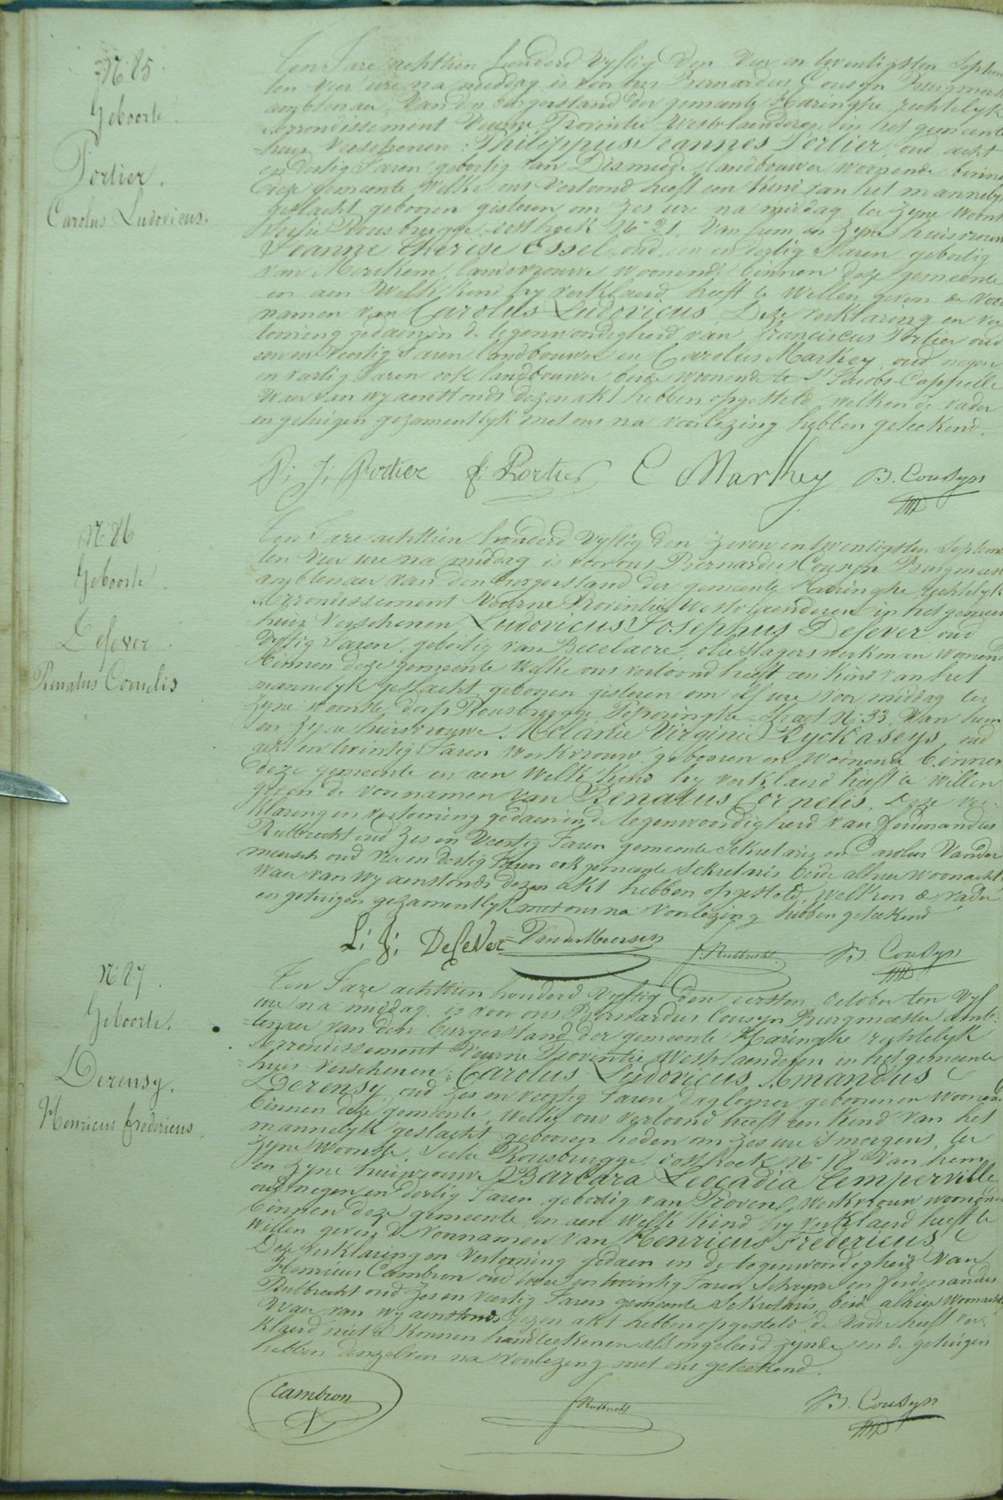 N° 85
Geboorte.
Portier.
Carolus Ludovicus.
Een Jare achttien honderd vyftig den vier en twentigsten Septem
ten vier ure na middag is voor ons Bernardus Cousyn Burgmees
ambtenaer van den burgerstand der gemeente Haringhe rechtelyk
Arrondissement Veurne Provintie Westvlaenderen in het gemeente
huis verschenen: Philippus Joannes Portier, oud acht
en dertig Jaren geboortig van Dixmude landbouwer woonende binnen
deze gemeente welke ons vertoond heeft een kind van het mannelyk
geslacht geboren gisteren om zes ure na middag ter zyne woonst
Rousbrugge oosthoek N° 21. Van hem en zyne huisvrouw
Joanne Therese Essel, oud en dertig Jaren geboortig
van Merckem, landbouwer woonende binnen deze gemeente
en aen welk kind hy verklaerd heeft te willen geven de voor
namen van Carolus Ludovicus. Deze verklaring en ver
tooning gedaen in de tegenwoordigheid van Franciscus Portier oud
en veertig Jaren landbouwer en Carolus Markey oud negen
en dertig Jaren ook landbouwer beide woonende te St Jacobs-Cappelle
Waer van wy aenstonds dezen akt hebben opgesteld, welken de vader
en getuigen gezamentlyk met ons na voorlezing hebben geteekend.
P. J. Portier F. Portier C Markey B. Cousyn
N° 86
Geboorte
Defever
Renatus Cornelis
Een Jare achttien honderd vyftig den zeven en twentigsten Septem
ten vier ure na middag is voor ons Bernardus Cousyn Burgmees
ambtenaer van den burgerstand der gemeente Haringhe rechtelyk
Arrondissement Veurne Provintie Westvlaenderen in het gemeente
huis verschenen Ludovicus Josephus Defever oud
vyftig Jaren, geboortig van Becelaere, werkman woonende
binnen deze gemeente welke ons vertoond heeft een kind van het
mannelyk geslacht geboren gisteren om elf ure voor middag ter
zyne woonste dorp Rousbrugge Straet N° 33. Van hem
en zyne huisvrouwe Melanie Virginie Ryckaseys, oud
acht en twintig Jaren werkvrouw geboren en woonende binnen
deze gemeente en aen welk kind hy verklaerd heeft te willen
geven de voornamen van Renatus Cornelis. Deze ver
klaring en vertooning gedaen in de tegenwoordigheid van Ferdinandus
Rutbrecht oud zes en veertig Jaren gemeente Sekretaris en Carolus Vander
meersch oud vier en dertig Jaren ook gemeente Sekretaris beide alhier woonacht
waer van wy aenstonds dezen akt hebben opgesteld, welken de vader
en getuigen gezamentlyk met ons na voorlezing hebben geteekend
L: J: Defever VanderMeersch F. Rutbrecht B. Cousyn
N° 87.
Geboorte.
Derensy.
Henricus Fredericus
Een Jare achttien honderd vyftig den eersten october ten vyf
ure na middag is voor ons Bernardus Cousyn Burgmeester Amb-
tenaer van den burgerstand der gemeente Haringhe rechtelyk
Arrondissement Veurne Provintie Westvlaenderen in het gemeente
huis verschenen: Carolus Ludovicus Amandus
Derensy, oud zes en veertig Jaren daglooner geboren en woonende
binnen deze gemeente, welke ons vertoond heeft een kind van het
mannelyk geslacht geboren heden om zes ure 's morgens, ter
zyne woonste, Rousbrugge oosthoek N° 18. Van hem
en zyne huisvrouwe Barbara Leocadia Temperville
oud negen en dertig Jaren geboortig van Proven, werkvrouw woonende
binnen deze gemeente en aen welk kind hy verklaerd heeft te
willen geven de voornamen van Henricus Fredericus
Deze verklaring en vertooning gedaen in de tegenwoordigheid van
Henricus Cambron oud en twintig Jaren en Ferdinandus
Rutbrecht oud zes en veertig Jaren gemeente Sekretaris, beide alhier woonacht
Waer van wy aenstonds dezen akt hebben opgesteld, de vader heeft ver-
klaerd niet te konnen handteekenen als ongeleerd zynde en de getuigen
hebben denzelven na voorlezing met ons geteekend.
Cambron F. Rutbrecht B. Cousyn